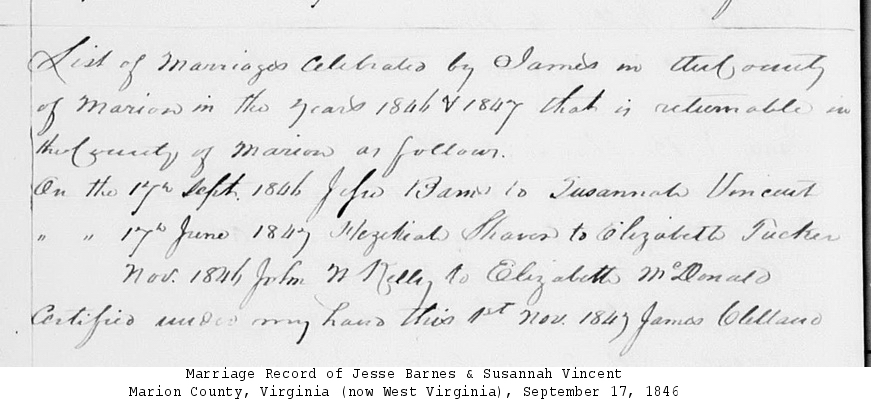 List of Marriages Celebrated by James in the County
of Marion in the years 1846 & 1847 that is returnable in
the County of Marion as follows.
On the 17th Sept. 1846 Jesse Barns to Susannah Vincent
" " 17th June 1847 Hezekiah Shaver to Elizabeth Tucker
Nov. 1846 John N Kelly to Elizabeth McDonald
Certified under my hand this 1st Nov. 1847 James Clelland
Marriage Record of Jesse Barnes & Susannah Vincent
Marion County, Virginia (now West Virginia), September 17, 1846